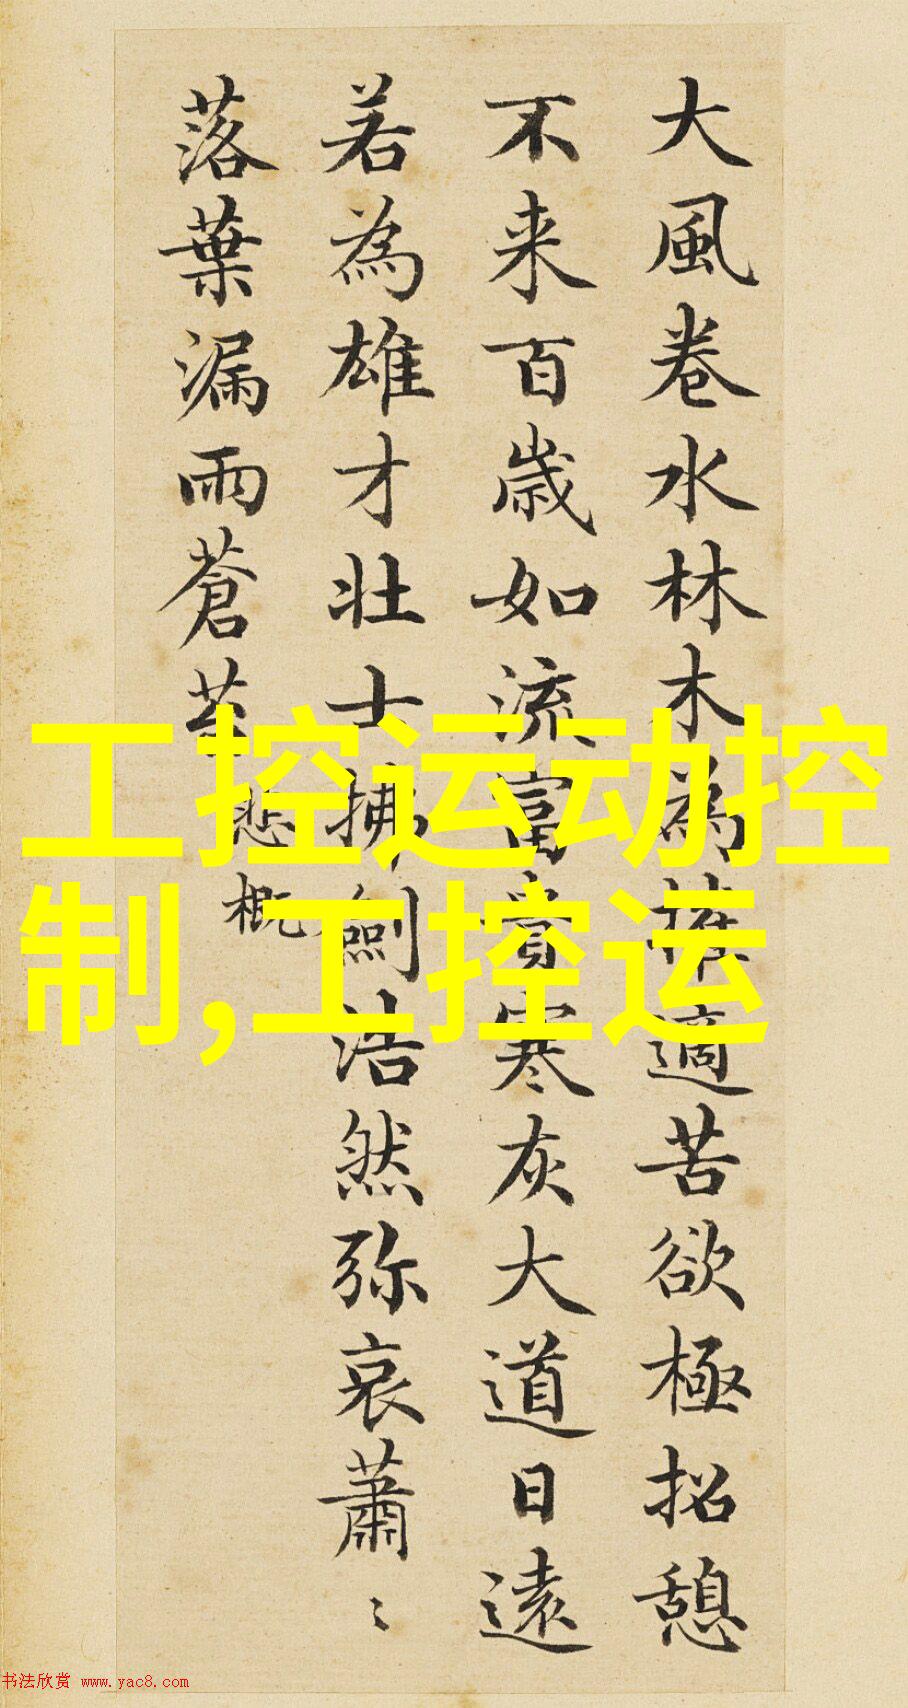 大風卷水林木為摧適苦欲極招憩
不来百歲如流富貴寒灰大道日遠
若為雄才壯士拂劍浩然弥哀蕭〻
落葉漏雨蒼苔
悲概
工控运动控
制,工控运
书法欣赏 www.yac8.com